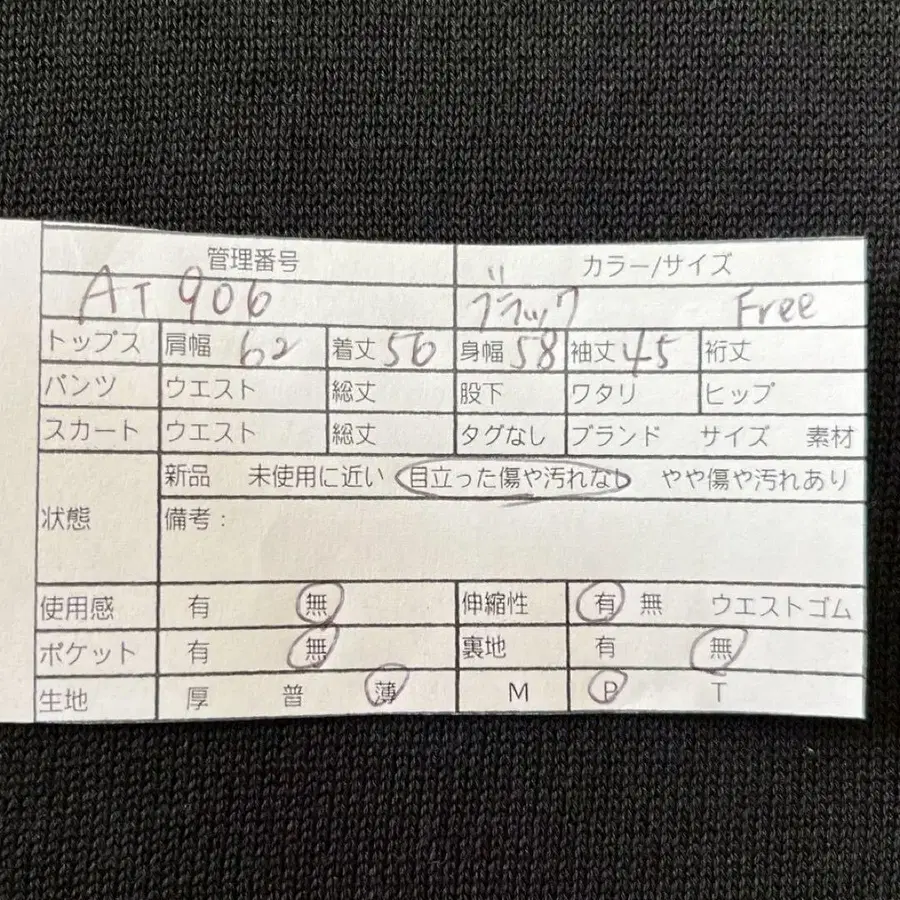 管理番号 カラー/サイズ
AT 906 ブラック Free
トップス 肩幅 62 着丈 56 身幅 58 袖丈 45 裄丈
パンツ ウエスト 総丈 股下 ワタリ ヒップ
スカート ウエスト 総丈 タグなし ブランド サイズ 素材
新品 未使用に近い 目立った傷や汚れなし やや傷や汚れあり
状態 備考:
使用感 有 無 伸縮性 有 無 ウエストゴム
ポケット 有 無 裏地 有 無
生地 厚 普 薄 M P T